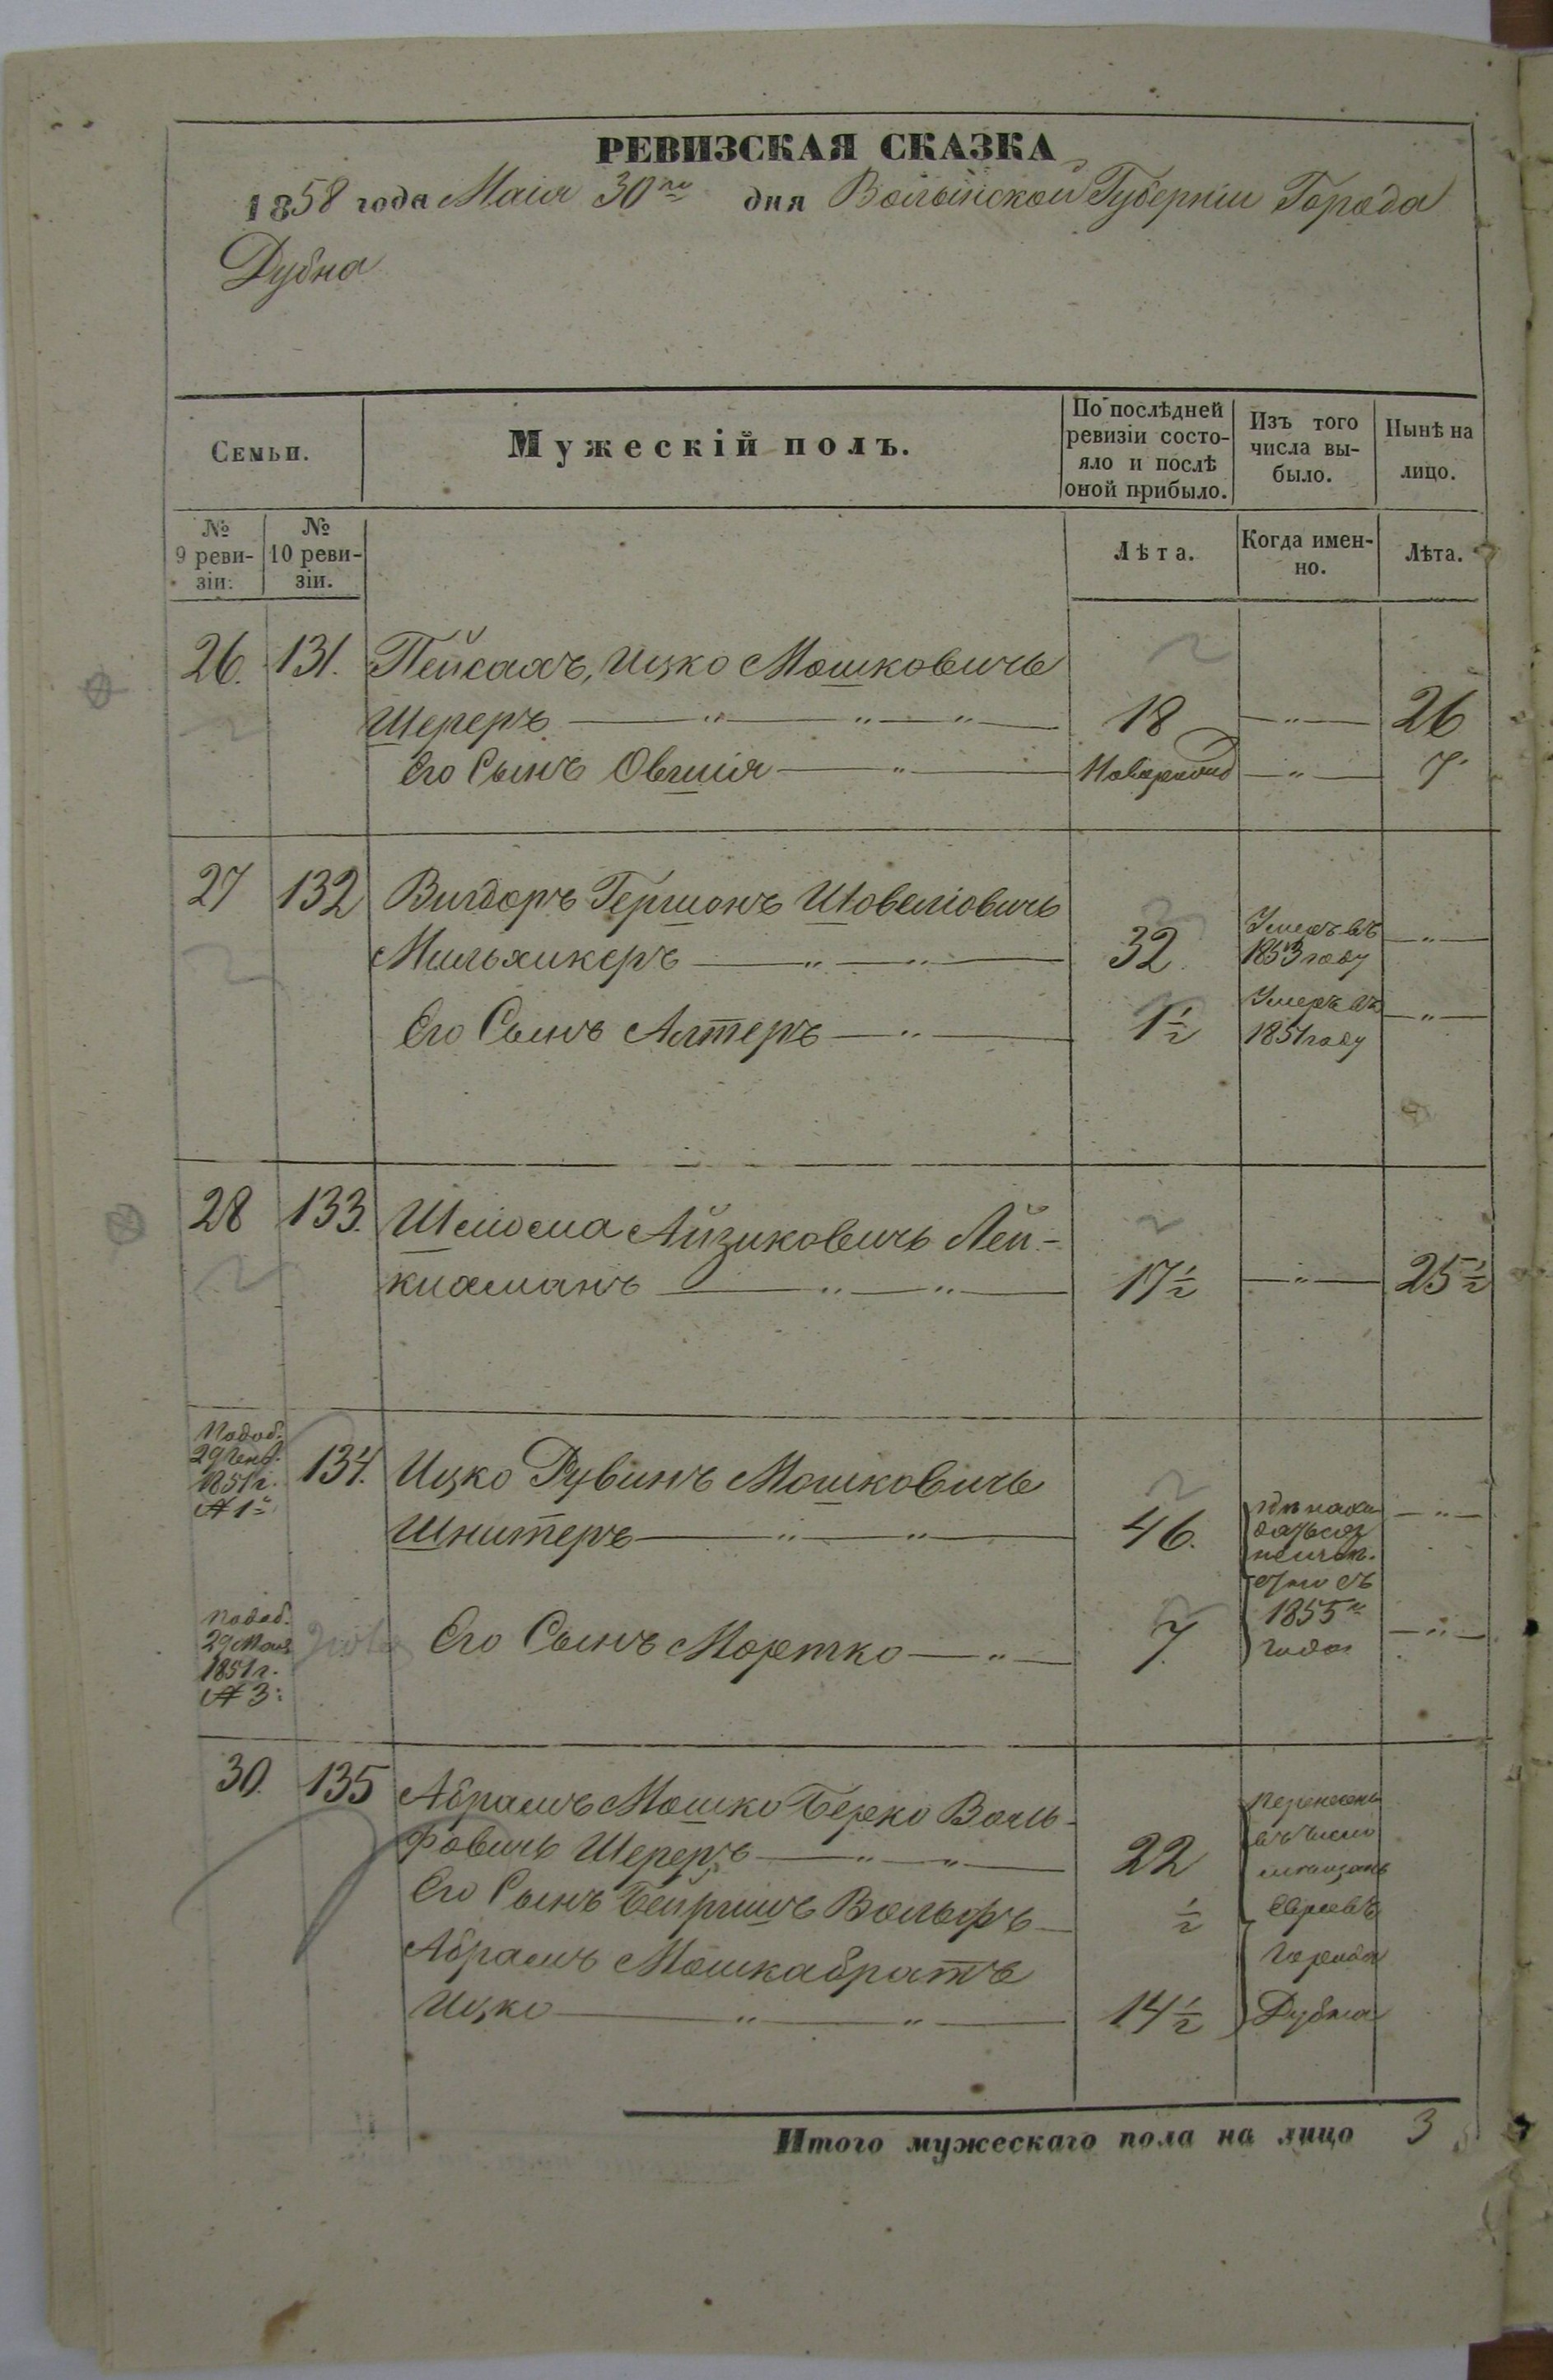 РЕВИЗСКАЯ СКАЗКА
1858 года Маія 30го дня Волынской Губерніи Города
Дубна
Семьи.
Мужескій полъ.
По послѣдней ревизіи состояло и послѣ оной прибыло.
Изъ того числа выбыло.
Нынѣ на лицо.
№ 9 ревизіи.
№ 10 ревизіи.
Лѣта.
Когда именно.
Лѣта.
26. 131. Пейсахъ, Ицко Мошковичъ
Шереръ — " — " — " — 18 — " — 26
Его Сынъ Овшія — " — Новорожд — " — 7
27 132 Вигдоръ Гершонъ Шовеліовичъ
Мильхикеръ — " — " — 32 Умеръ въ 1853 году — " —
Его Сынъ Алтеръ — " — 1½ Умеръ въ 1851 году — " —
28 133. Шлиома Айзиковичъ Лей-
кихманъ — " — " — 17½ — " — 25½
1851 г. № 1й 134. Ицко Рувинъ Мошковичъ
Шнитеръ — " — " — 46. — " —
1855го года
29 Мая 1851 г. № 3: Его Сынъ Мортко — " — 7. — " —
30. 135 Абрамъ Мошко Берко Воль-
фовичъ Шереръ — " — " — 22
Его Сынъ Бейришъ Вольфъ — ½
Абрамъ Мошка братъ
Ицко — " — " — 14½
Перенесены
въ число
мѣщанъ
Евреевъ
города
Дубна
Итого мужескаго пола на лицо 3